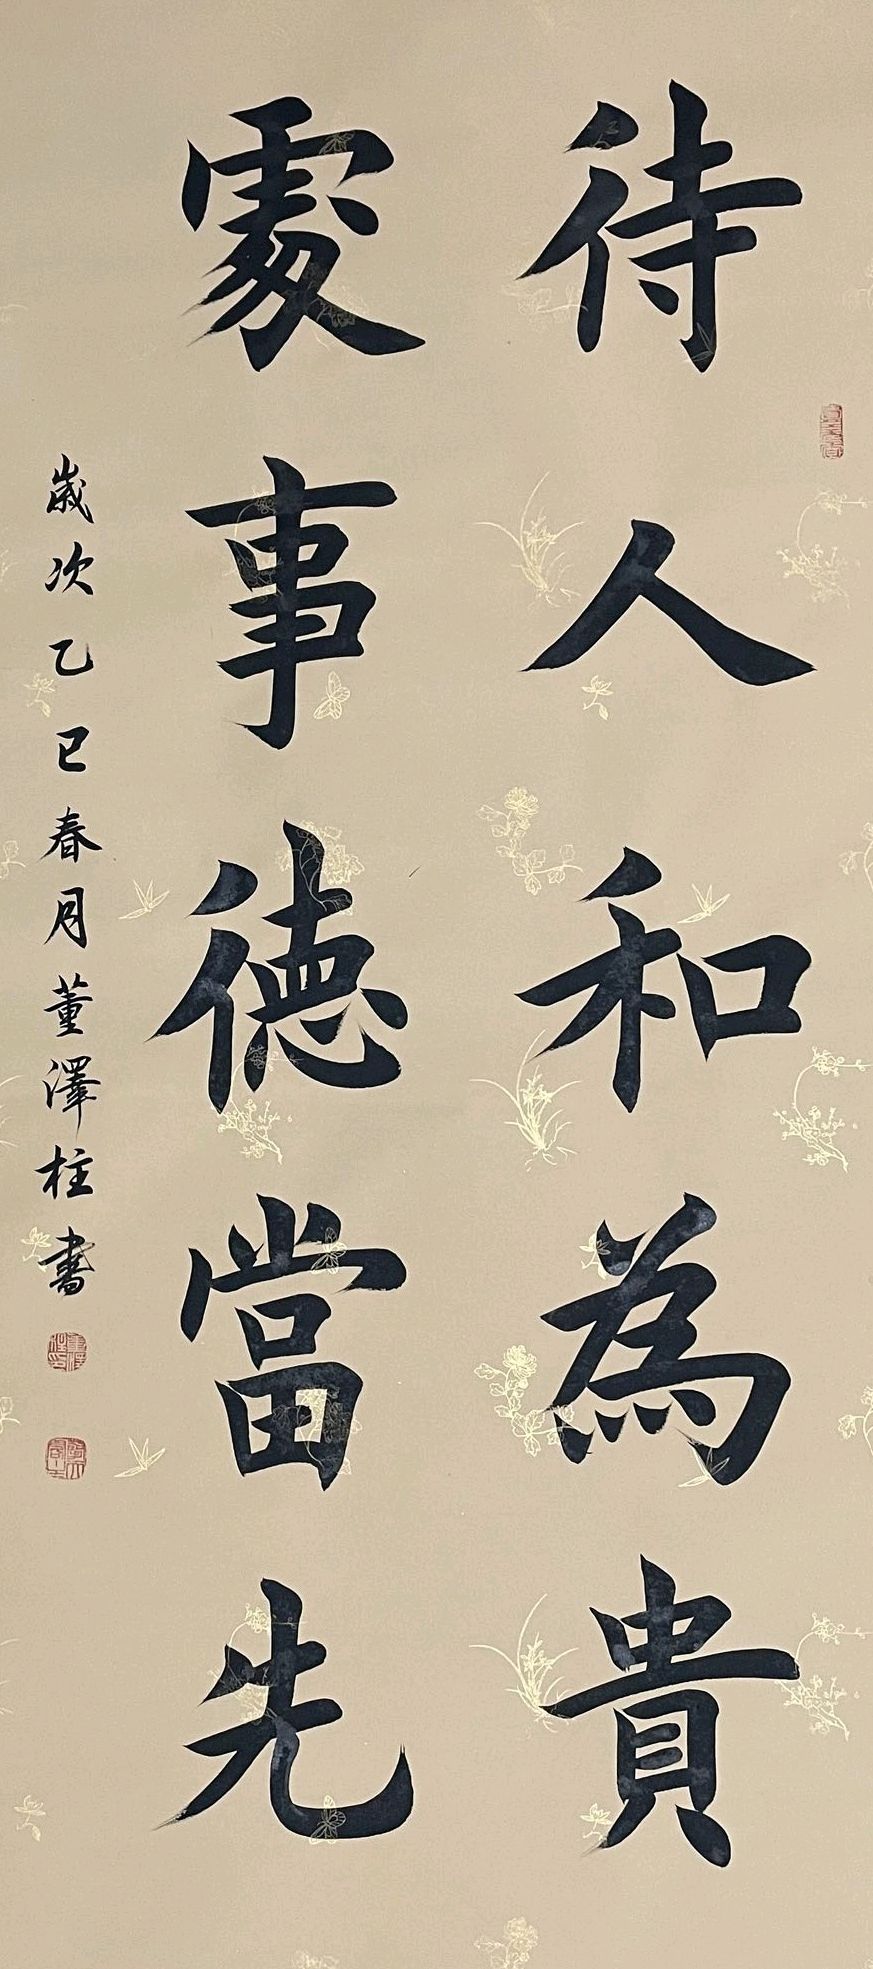 待人和為貴
處事德當先
歲次乙巳春月董澤柱書